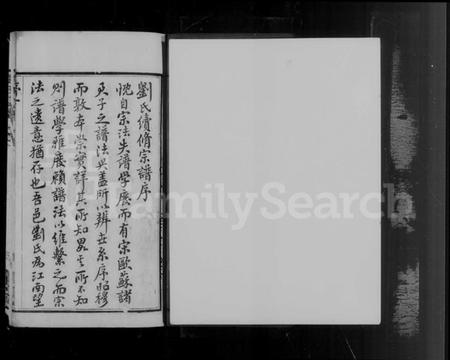 劉氏續脩宗譜序
慨自宗法失譜學廢而有宋歐蘇諸
君子之譜法興盖所以辨世系序昭穆
而敦本崇實詳其所知畧其所不知
則譜學雖廢顧譜法以維繫之而宗
法之遺意猶存也吾邑劉氏為江南望
FamilySearch